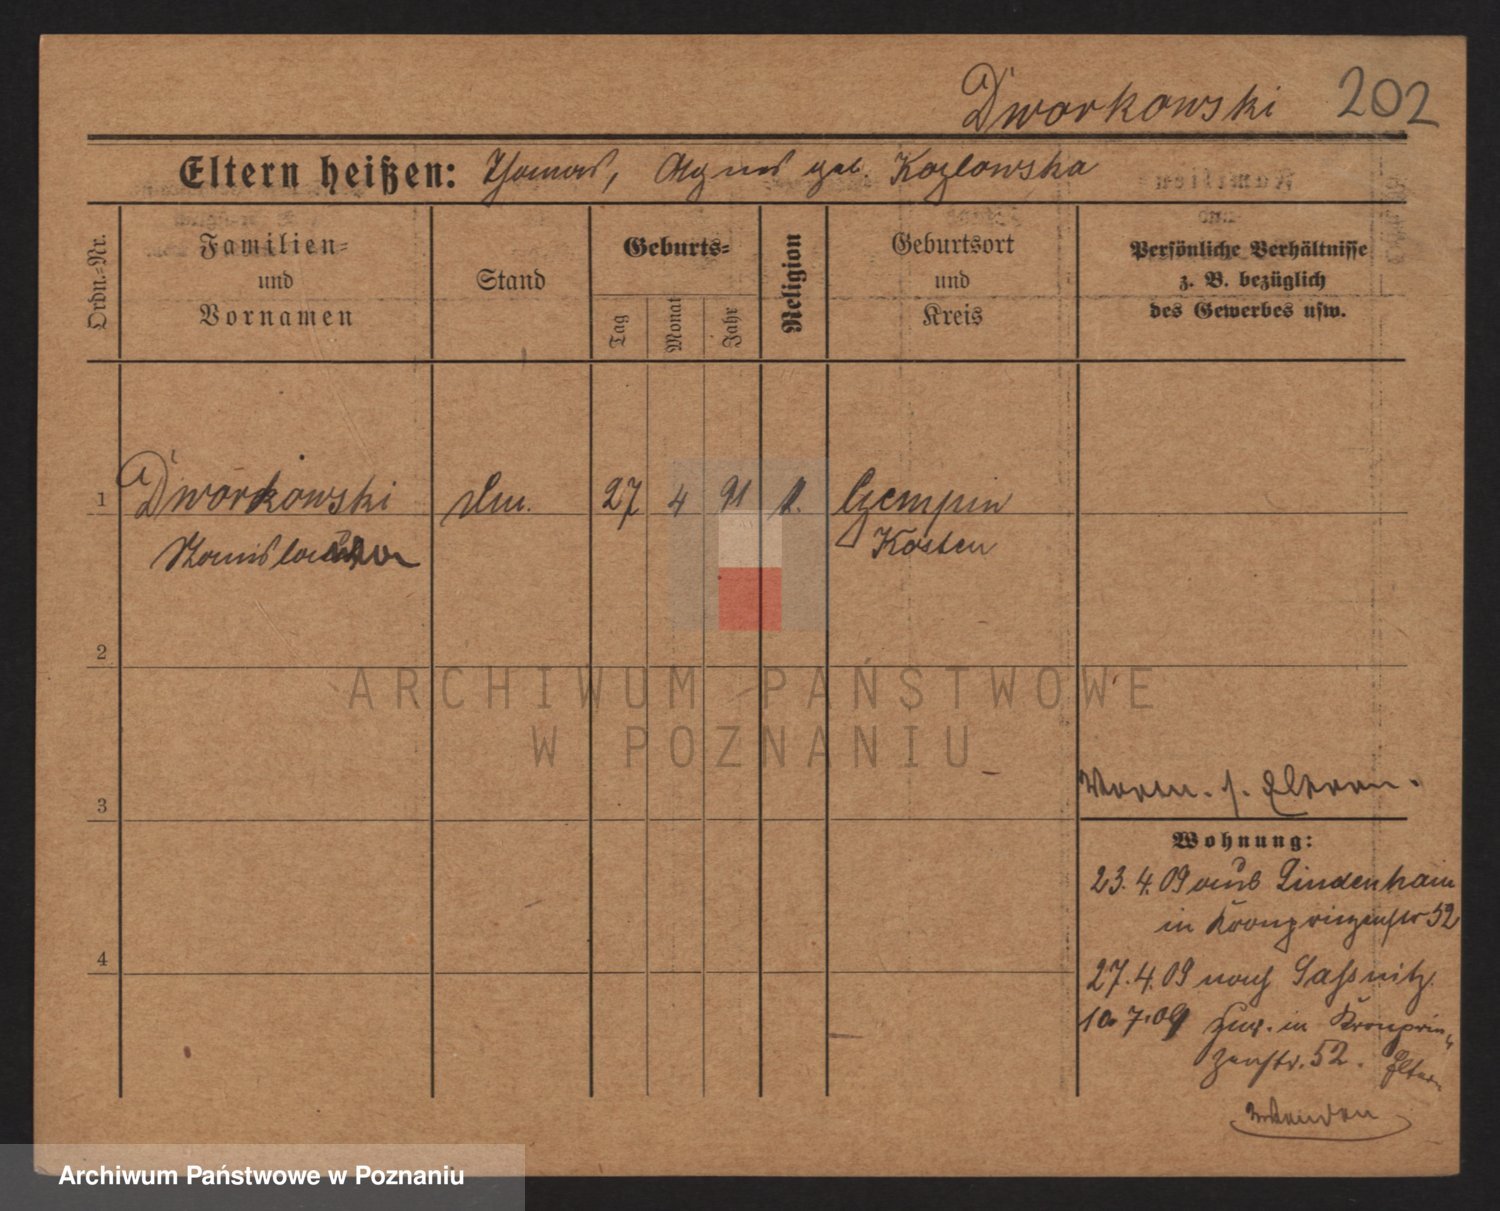 Dworkowski 202
Eltern heißen: Thomas, Agnes geb. Kozlowska
Ordn.-Nr.
Familien-
und
Vornamen
Stand
Geburts-
Tag
Monat
Jahr
Religion
Geburtsort
und
Kreis
Persönliche Verhältnisse
z. B. bezüglich
des Gewerbes usw.
1 Dworkowski 27 4 91 k. Czempin
Kosten
2
ARCHIWUM PAŃSTWOWE
W POZNANIU
3
s. Eltern.
Wohnung:
23.4.09 aus Lindenhain
in Kronprinzenstr 52
4
27.4.09 nach Saßnitz
10.7.09 zur. in Kronprin-
zenstr. 52. Eltern
wenden
Archiwum Państwowe w Poznaniu